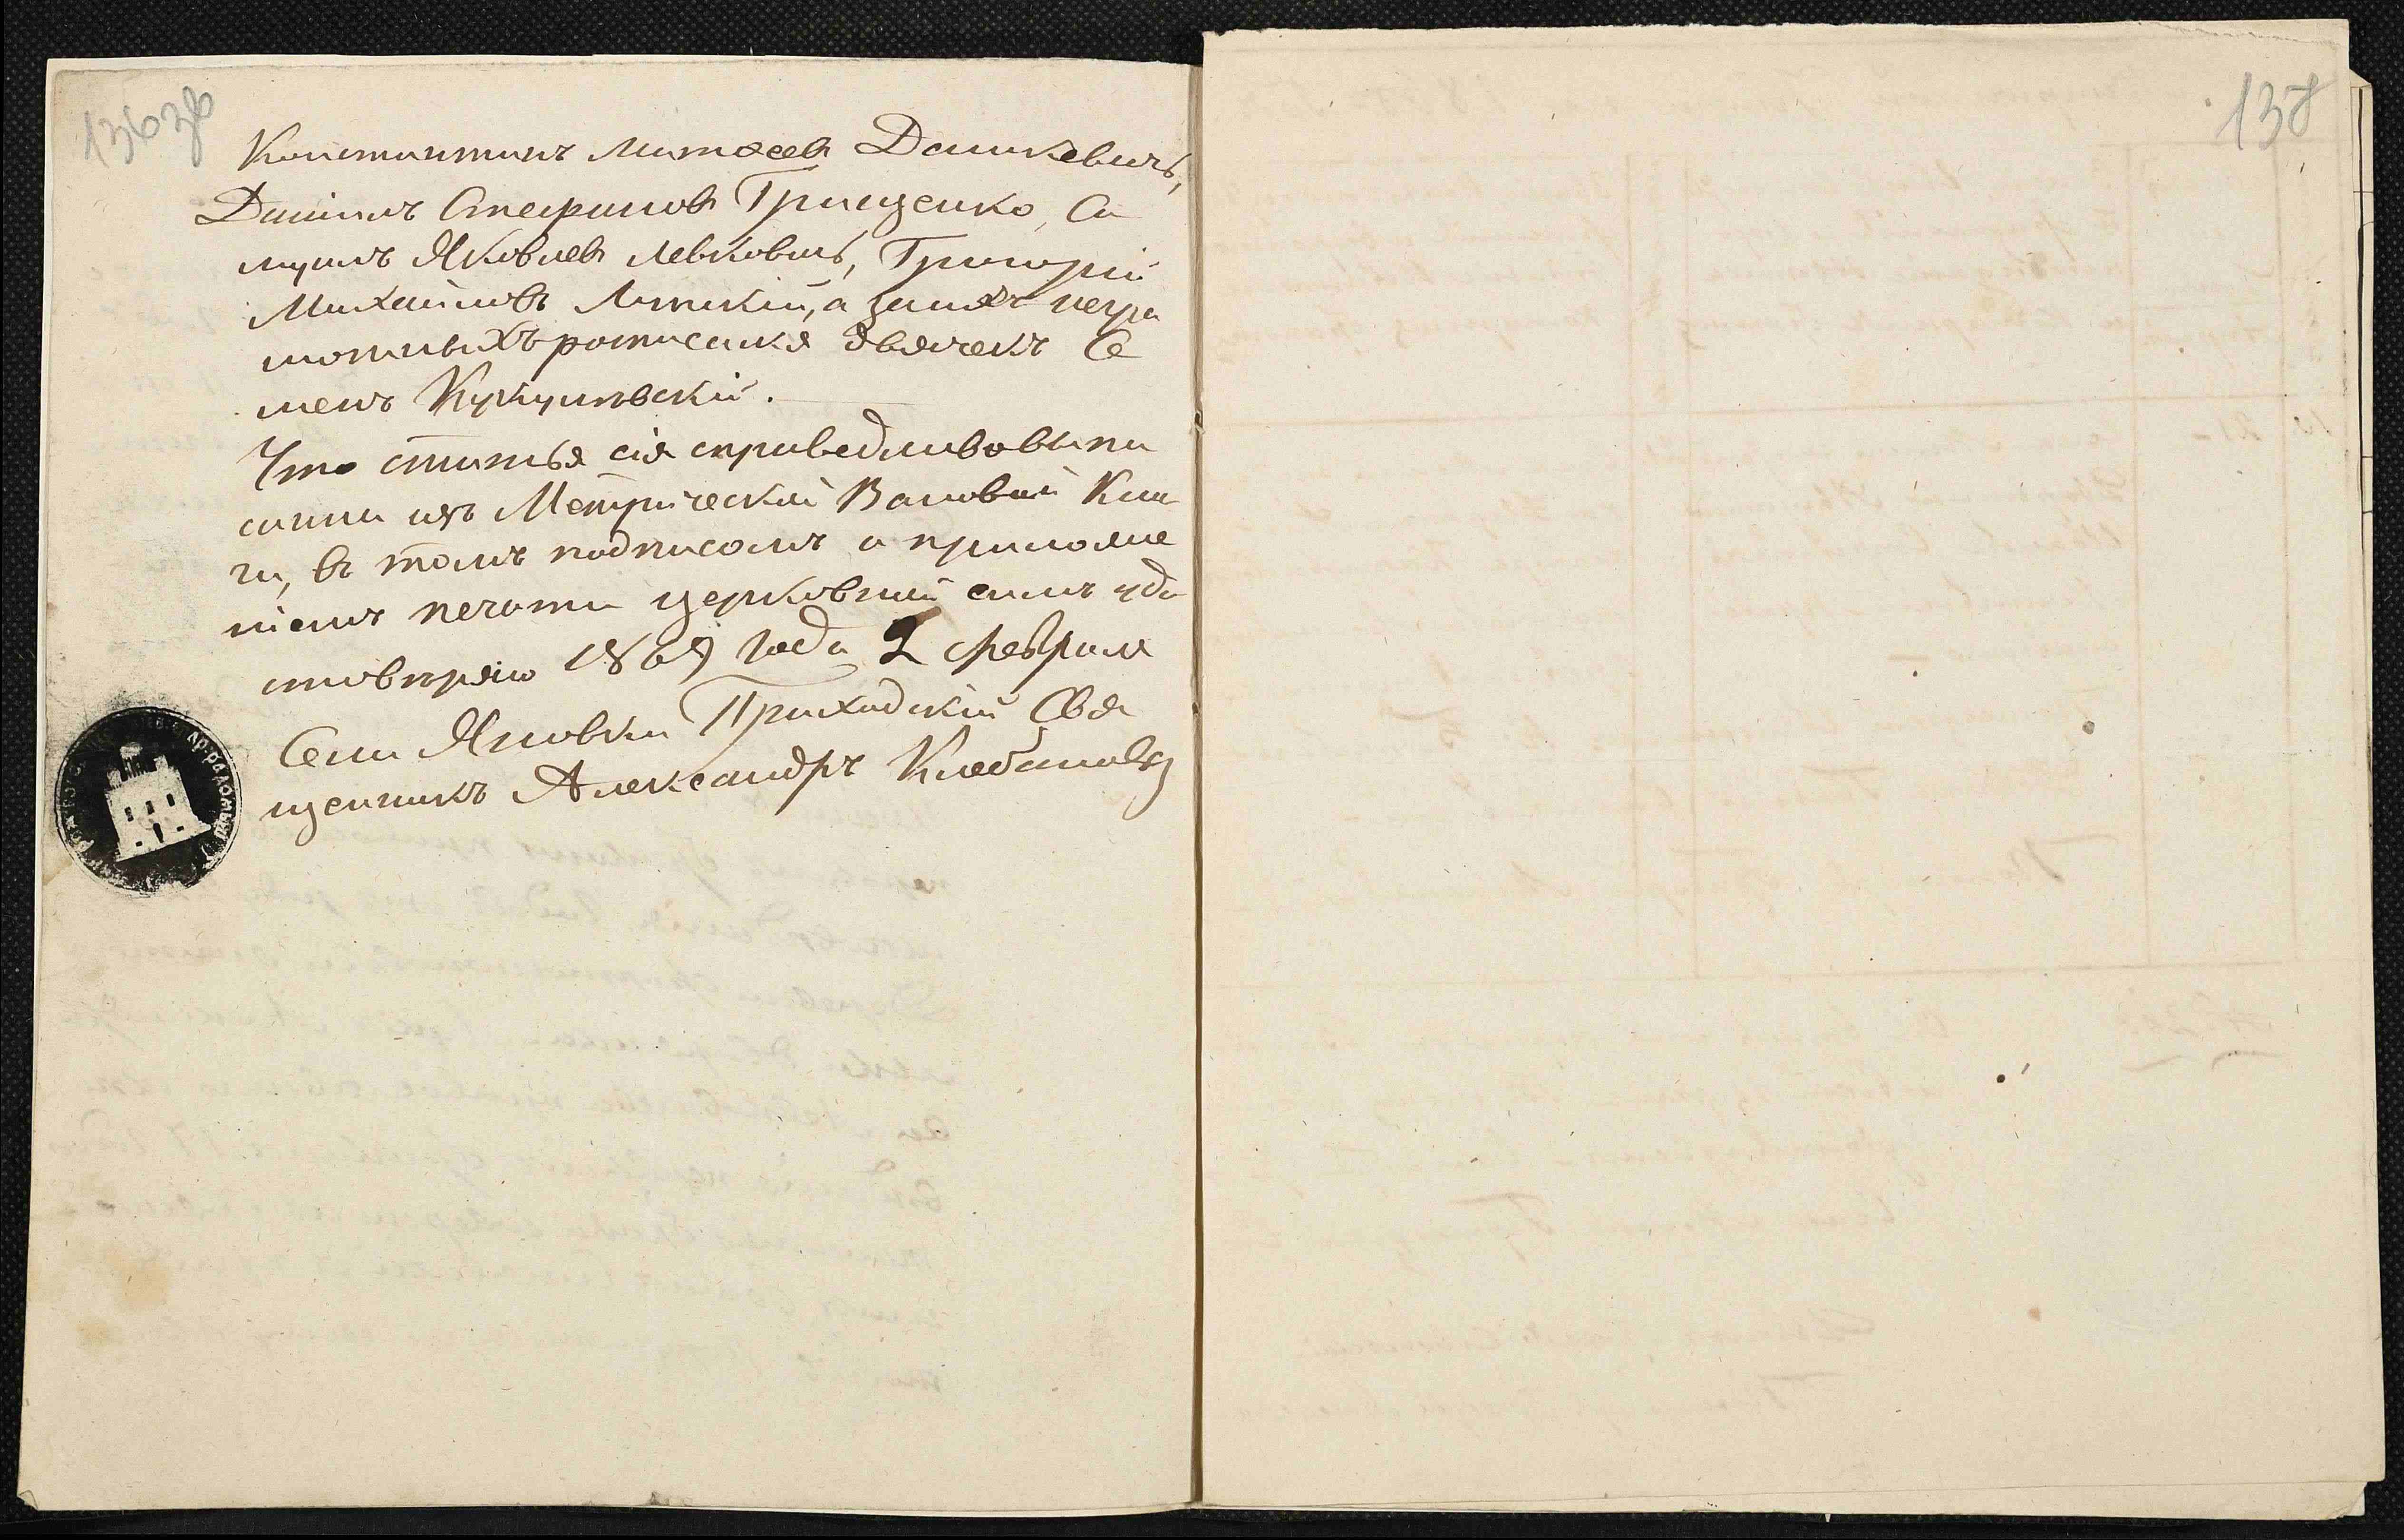 136 об
Константинъ Матѳеев Данкевичъ,
Даніилъ Стефановъ Грищенко, Са
муилъ Яковлевъ Левковичъ, Григорій
Михайловъ Липскій, а за нихъ негра
мотныхъ росписался дьячекъ Се
менъ
Что статья сія справедливо выпи
санна изъ Метрической Книги
ги, въ томъ подписомъ и приложе
ніемъ печати церковной симъ удо
стовѣряю 1869 года 2 Февраля
Села Яновки Приходскій Свя
щенникъ Александръ
138